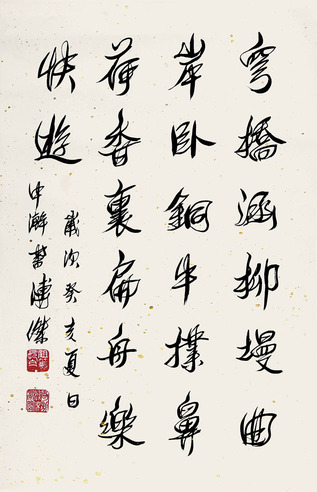 穹橋涵柳墁曲
岸臥銅牛撲鼻
荷香裏扁舟樂
快遊
歲次癸亥夏日
中澣溥傑